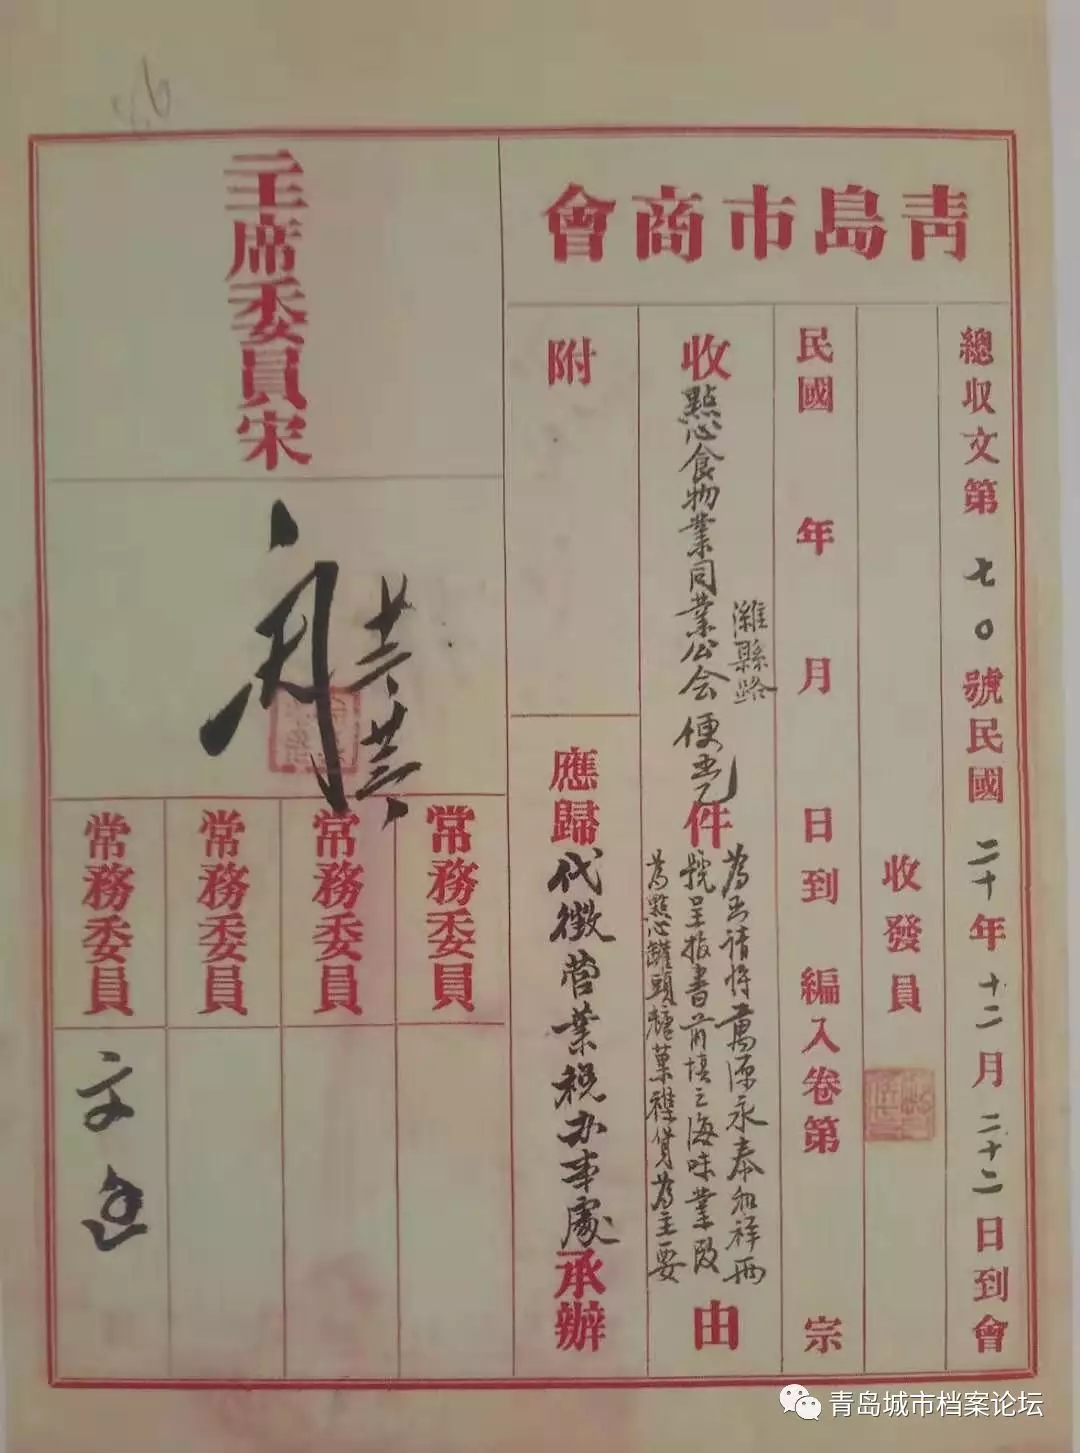 青島市商會
總収文第七〇號民國二十年十二月二十二日到會
收發員
民國 年 月 日到 編入卷第 宗
收點心食物業同業公会便函乙件
濰縣路
為函請将萬源永泰和祥兩
號呈报書前填之海味業改
為點心罐頭糖菓襍貨為主要
由
附
應歸代徵营業税办事處承辦
主席委員宋
廿二
常務委員
常務委員
常務委員
常務委員
青岛城市档案论坛